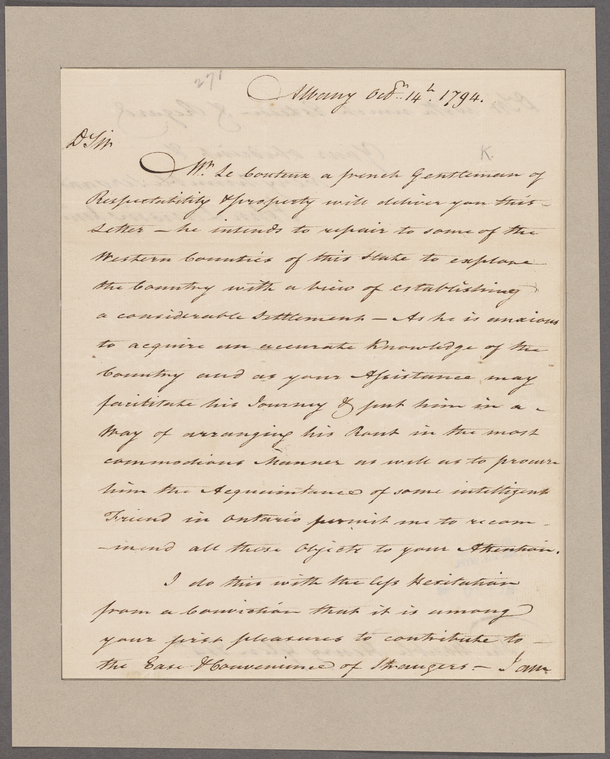 271
Albany Octbr. 14th. 1794.
D Sir
K.
Mr. Le Couteux a french Gentleman of
Respectability & property will deliver you this
Letter — he intends to repair to some of the
Western Counties of this State to explore
the Country with a view of establishing
a considerable Settlement — As he is anxious
to acquire an accurate Knowledge of the
Country and as your Assistance may
facilitate his Journey & put him in a
Way of arranging his Rout in the most
commodious Manner as well as to procure
him the Acquaintance of some intelligent
Friend in Ontario permit me to recom-
-mend all these Objects to your Attention.
I do this with the less Hesitation
from a Conviction that it is among
your first pleasures to contribute to
the Ease & Convenience of Strangers — I am